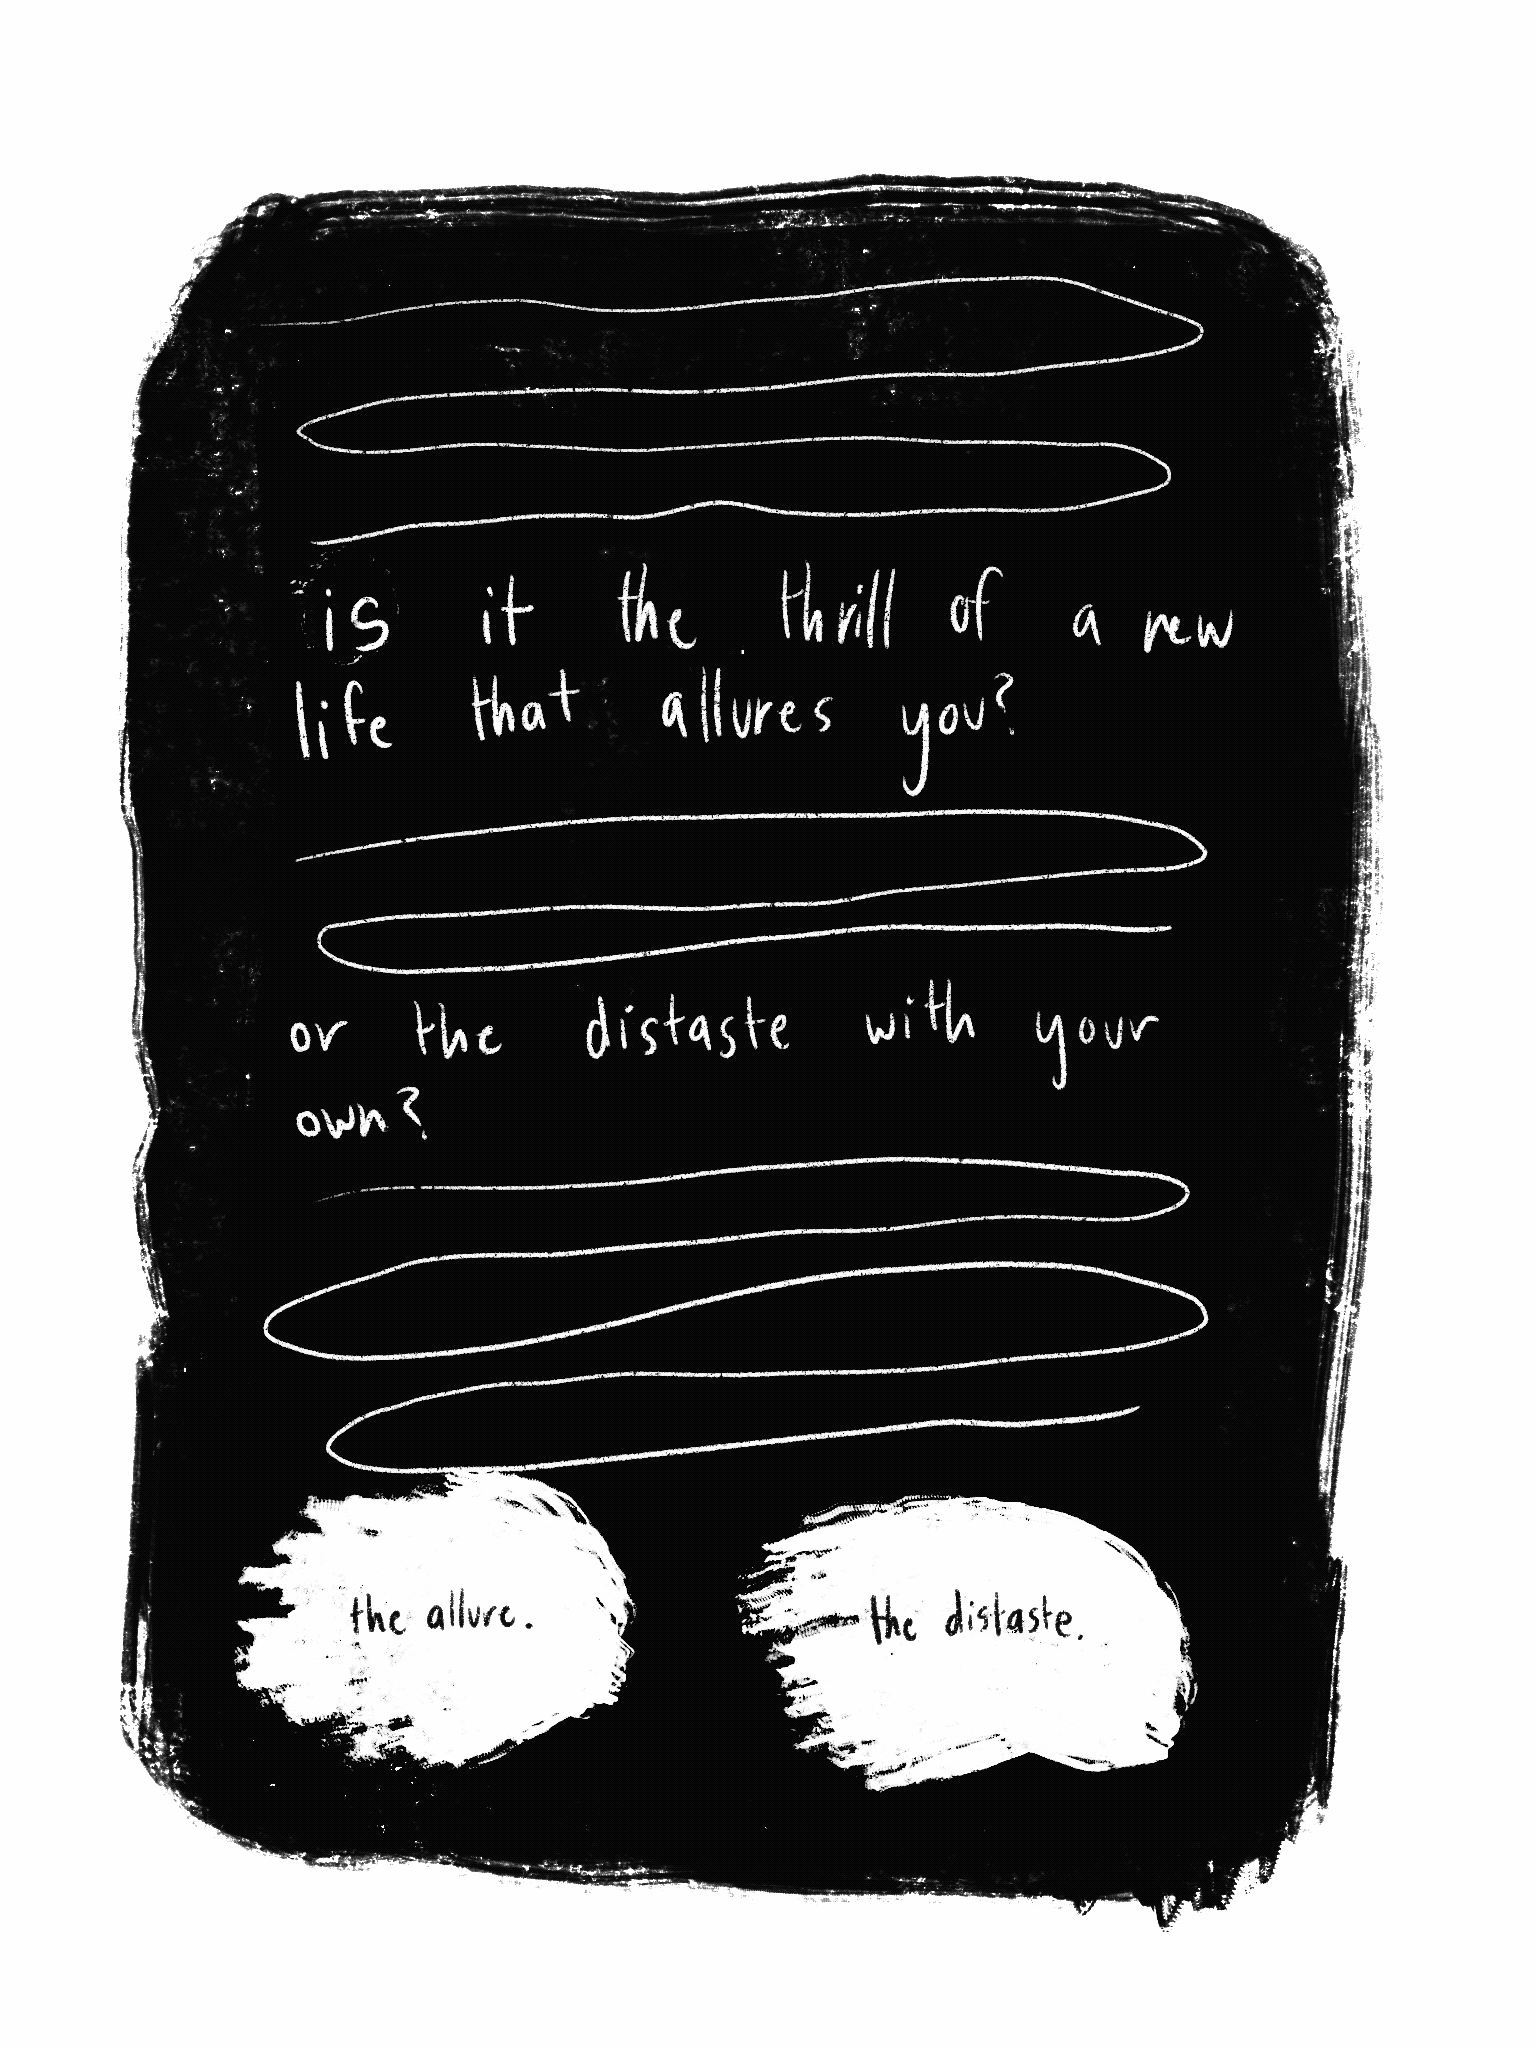 is it the thrill of a new
life that allures you?
or the distaste with your
own?
the allure.
the distaste.